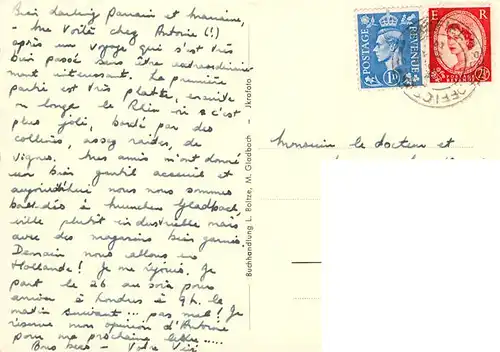 Bien darling Parrain et marraine,
– Me voilà chez Antonie (!)
après un voyage qui s'est très
bien passé sans être extraordinaire
ment intéressant. La première
partie est très platte, ensuite
on longe le Rhin où c'est
plus joli, bordé par des
collines, assez raides, de
vignes. Mes amis m'ont donné
un bien gentil accueil et
aujourd'hui nous nous sommes
baladés à München Gladbach
ville plutôt industrielle mais
avec des magasins bien garnis.
Demain nous allons en
Hollande! Je me réjouis. Je
part le 26 au soir pour
arriver à Londres à 9h. le
matin suivant... pas mal! Je
réserve mon opinion d'Antonie
pour ma prochaine lettre.....
Bons becs – Votre
Buchhandlung L. Boltze, M. Gladbach - Jkrafoto
POSTAGE REVENUE
1D
E R
2½
OFFICE
Monsieur le docteur et